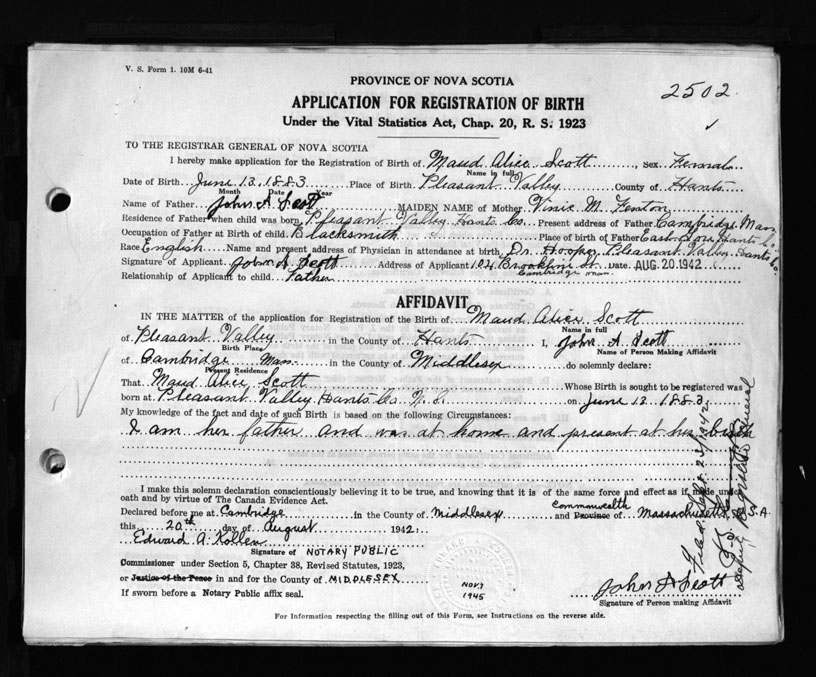 V. S. Form 1. 10M 6-41
2502
PROVINCE OF NOVA SCOTIA
APPLICATION FOR REGISTRATION OF BIRTH
Under the Vital Statistics Act, Chap. 20, R. S. 1923
TO THE REGISTRAR GENERAL OF NOVA SCOTIA
I hereby make application for the Registration of Birth of Maud Alice Scott, Sex Female
Name in full
Date of Birth June 13, 1883 Place of Birth Pleasant Valley County of Hants
Month Date Year
Name of Father John A. Scott MAIDEN NAME of Mother Vinie M. Fenton
Residence of Father when child was born Pleasant Valley Hants Co. Present address of Father Cambridge Mass
Occupation of Father at Birth of child Blacksmith Place of birth of Father East Gore Hants Co.
Race English Name and present address of Physician in attendance at birth Dr. Hooper Pleasant Valley Hants Co.
Signature of Applicant John A. Scott Address of Applicant 124 Brookline St. Date AUG. 20 1942
Cambridge Mass.
Relationship of Applicant to child Father
AFFIDAVIT
IN THE MATTER of the application for Registration of the Birth of Maud Alice Scott
Name in full
of Pleasant Valley in the County of Hants I, John A Scott
Birth Place
Name of Person Making Affidavit
of Cambridge Mass. in the County of Middlesex do solemnly declare:
Present Residence
That Maud Alice Scott Whose Birth is sought to be registered was
born at Pleasant Valley Hants Co. N. S. on June 13 1883
My knowledge of the fact and date of such Birth is based on the following Circumstances:
I am her father and was at home and present at her birth
I make this solemn declaration conscientiously believing it to be true, and knowing that it is of the same force and effect as if made under
oath and by virtue of The Canada Evidence Act.
Commonwealth
Declared before me at Cambridge in the County of Middlesex and Province of Massachusetts, U.S.A.
this 20th day of August 1942
Edward A.
Signature of NOTARY PUBLIC
Commissioner under Section 5, Chapter 38, Revised Statutes, 1923,
or Justice of the Peace in and for the County of MIDDLESEX
If sworn before a Notary Public affix seal.
NOV 9
1945
John A Scott
Signature of Person making Affidavit
Filed Sept. 23/1942
Deputy Registrar General
For Information respecting the filling out of this Form, see Instructions on the reverse side.